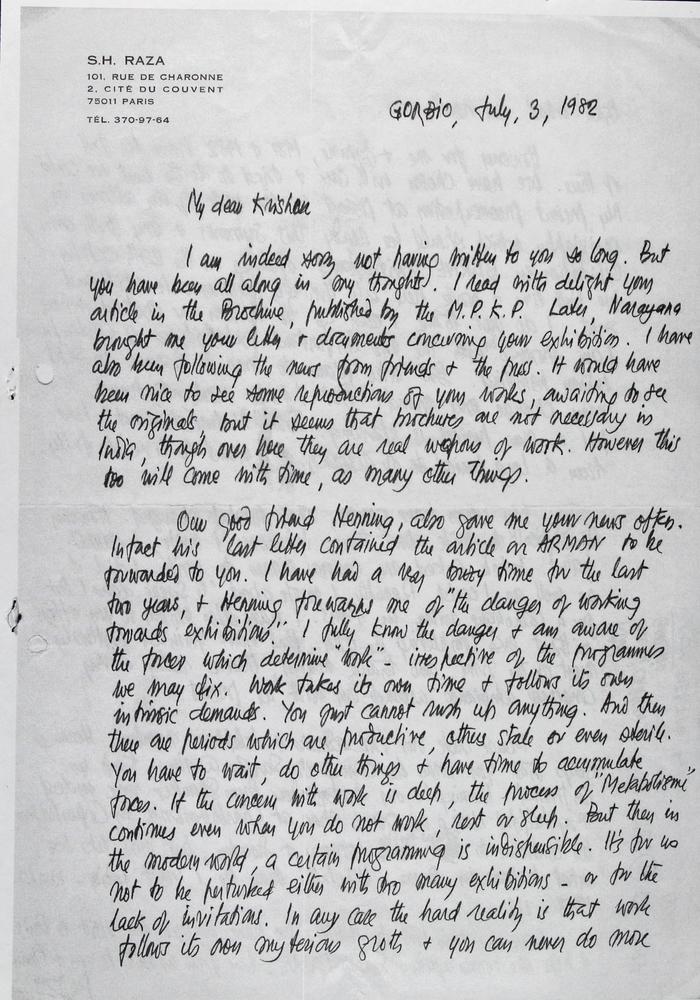 S.H. RAZA
101. RUE DE CHARONNE
2. CITÉ DU COUVENT
75011 PARIS
TÉL. 370-97-64
GORBIO, July, 3, 1982
My dear Krishen
I am indeed sorry not having written to you so long. But
you have been all along in my thoughts. I read with delight your
article in the Brochure, published by the M.P.K.P. Later, Narayana
brought me your letter + documents concerning your exhibition. I have
also been following the news from friends + the press. It would have
been nice to see some reproductions of your works, awaiting to see
the originals, but it seems that brochures are not necessary in
India, though over here they are real weapons of work. However this
too will come with time, as many other things.
Our good friend Henning, also gave me your news often.
Infact his last letter contained the article on ARMAN to be
forwarded to you. I have had a very busy time for the last
two years, + Henning forewarns me of "the danger of working
towards exhibitions". I fully know the danger + am aware of
the forces which determine "work" - irrespective of the programmes
we may fix. Work takes its own time + follows its own
intrinsic demands. You just cannot rush up anything. And then
there are periods which are productive, others stale or even sterile.
You have to wait, do other things + have time to accumulate
forces. If the concern with work is deep, the process of "Metabolisme"
continues even when you do not work, rest or sleep. But then in
the modern world, a certain programming is indispensible. It's for us
not to be perturbed either with two many exhibitions - or for the
lack of invitations. In any case the hard reality is that work
follows its own mysterious groth + you can never do more